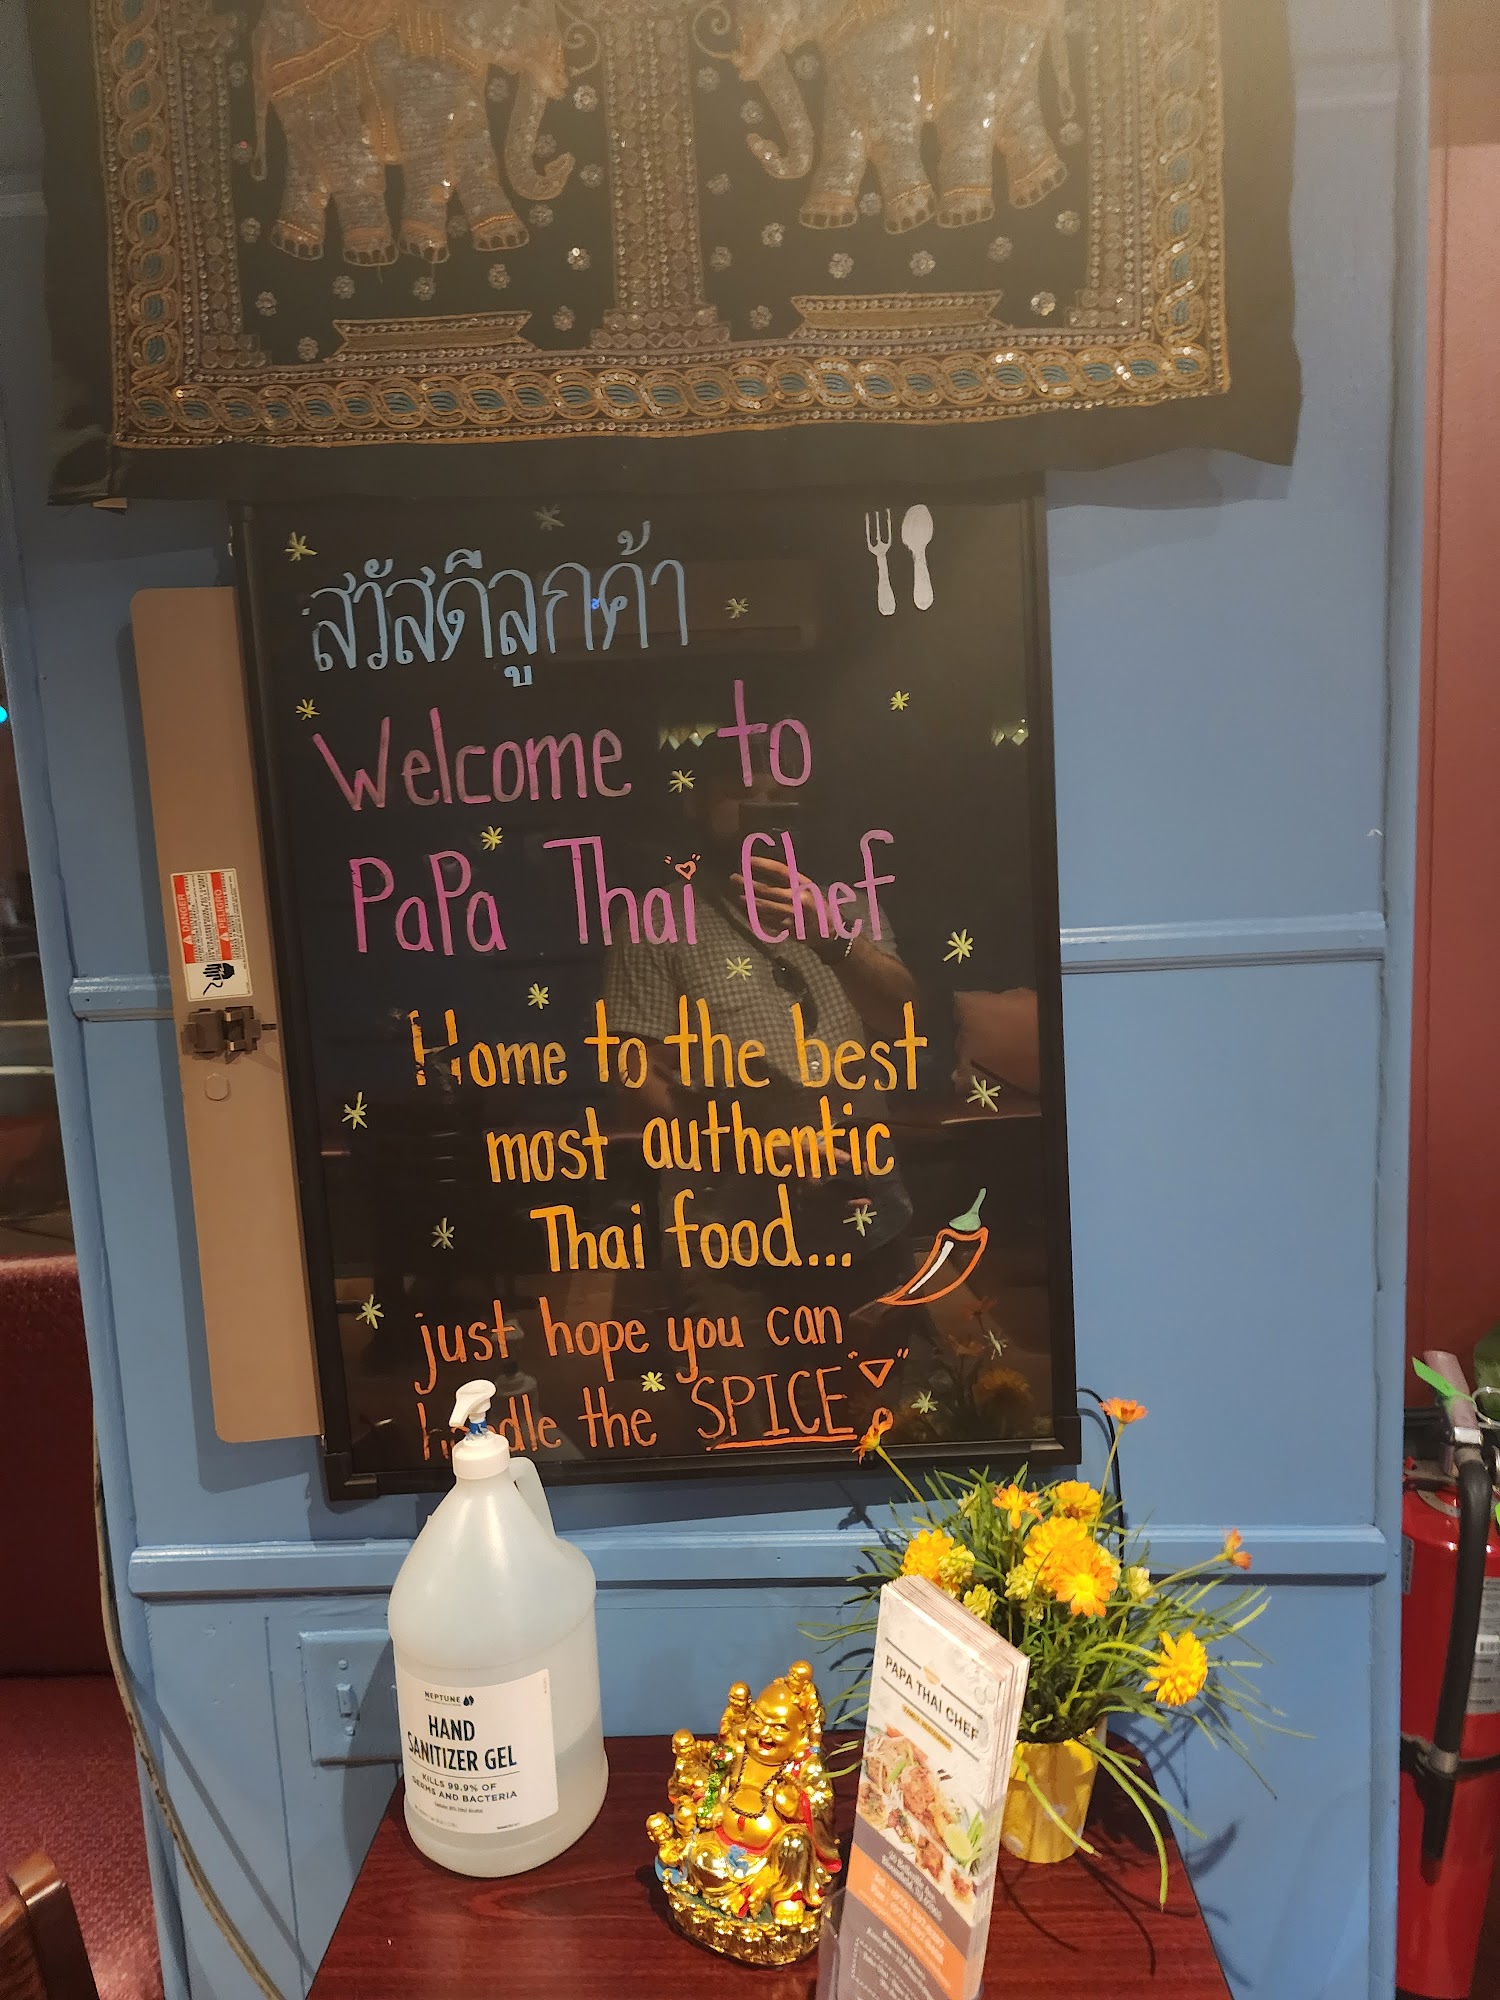 สวัสดีลูกค้า
Welcome to
PaPa Thai Chef
Home to the best
most authentic
Thai food...
just hope you can
handle the SPICE
DANGER
PELIGRO
NEPTUNE
HAND
SANITIZER GEL
KILLS 99.9% OF
GERMS AND BACTERIA
PAPA THAI CHEF